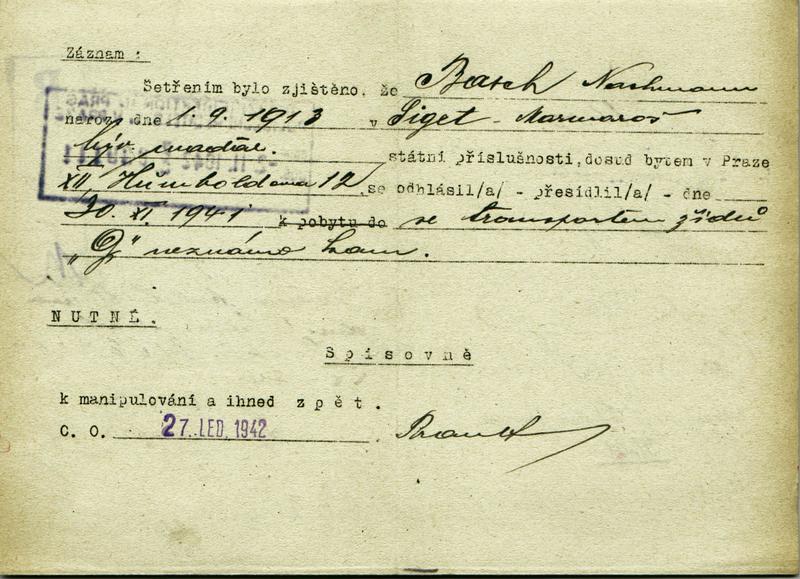 Záznam :
Šetřením bylo zjištěno, že Basch Nachmann
naroz. dne 1.9.1913 v Siget - Marmaroš
býv. maďar. státní příslušnosti, dosud bytem v Praze
XII, Humboldova 12 se odhlásil/a/ - přesídlil/a/ - dne
30. XI. 1941 k pobytu do se transportem židů
„G" neznámo kam.
NUTNÉ.
Spisovně
k manipulování a ihned zpět.
C. O. 27. LED. 1942